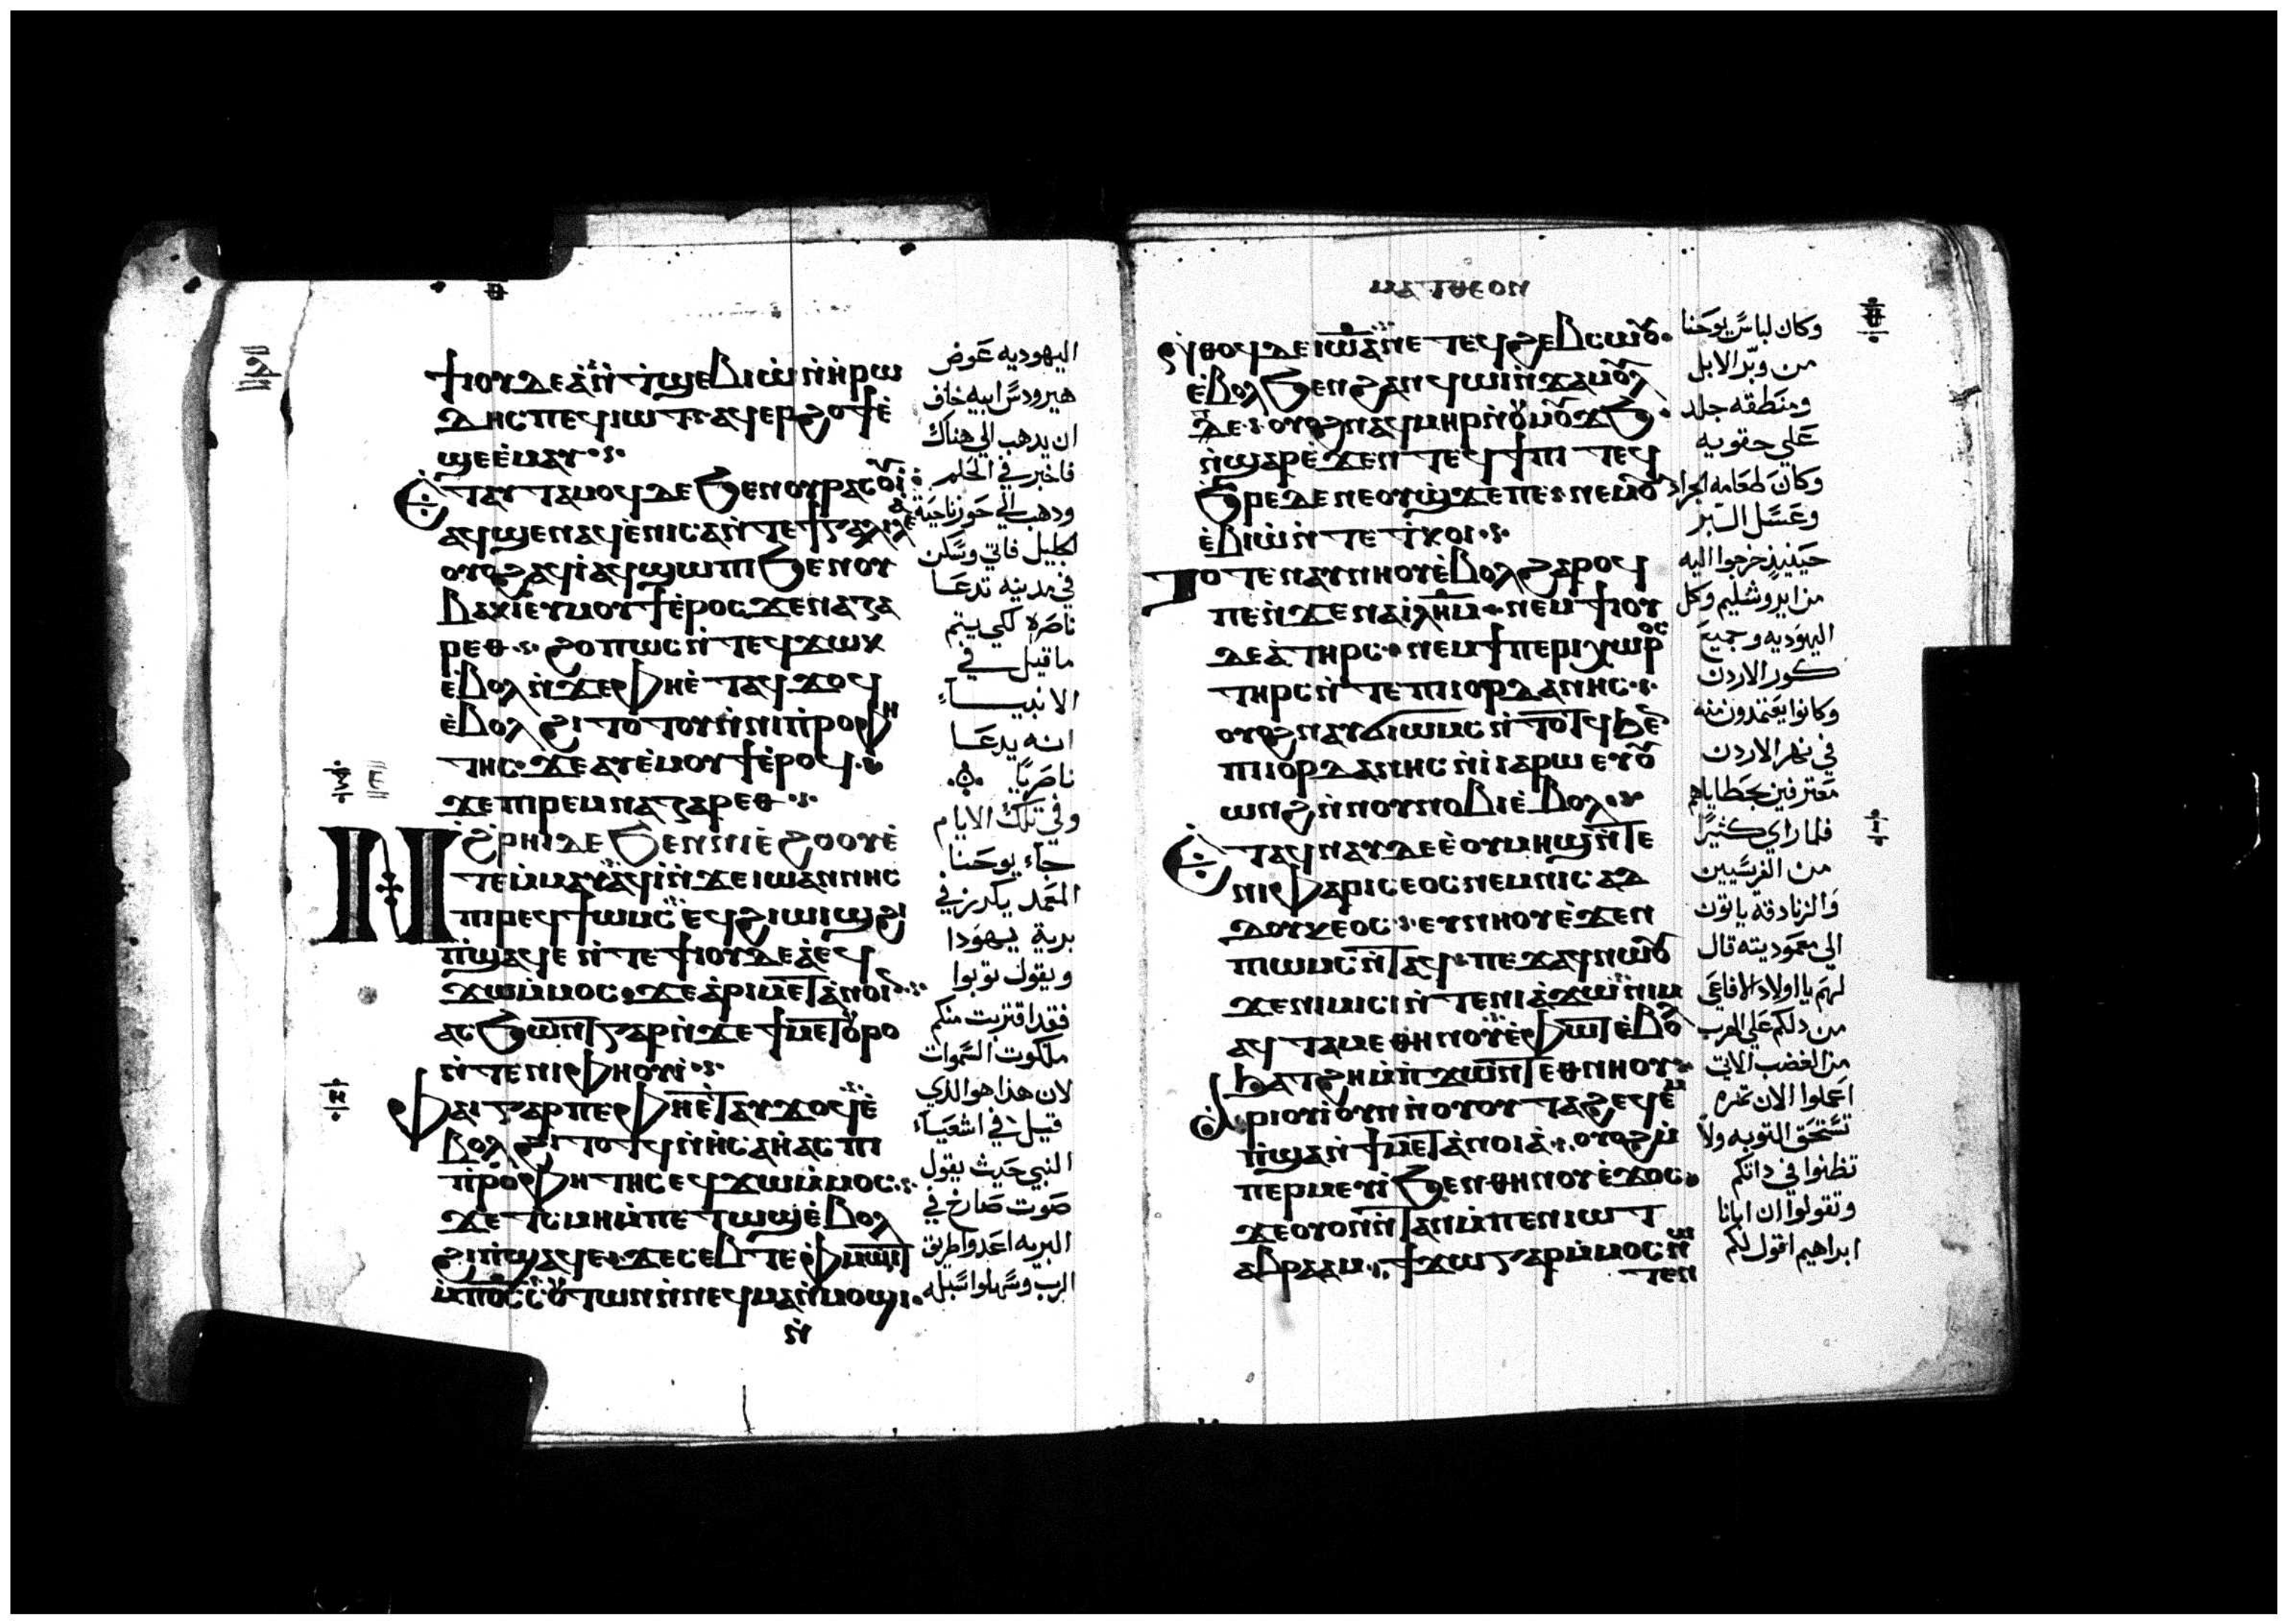 ϯⲓⲟⲩⲇⲉⲁ̀ⲛ̀ⲧϣⲉⲃⲓⲱ̀ⲛ̀ⲏⲣⲱ
ⲇⲏⲥⲡⲉϥⲓⲱⲧ·ⲁϥⲉⲣϩⲟϯⲉ̀
ϣⲉⲉ̀ⲙⲁⲩ
ⲉⲧⲁⲩⲧⲁⲙⲟϥⲇⲉϧⲉⲛⲟⲩⲣⲁⲥⲟⲩⲓ̀
ⲁϥϣⲉⲛⲁϥⲉ̀ⲛⲓⲥⲁⲛ̀ⲧⲉϯⲅⲁⲗⲓⲗⲉⲁ
ⲟⲩⲟϩⲁϥⲓ̀ⲁϥϣⲱⲡⲓϧⲉⲛⲟⲩ
ⲃⲁⲕⲓⲉⲩⲙⲟⲩϯⲉ̀ⲣⲟⲥϫⲉⲛⲁⲍⲁ
ⲣⲉⲑ·ϩⲟⲡⲱⲥⲛ̀ⲧⲉϥϫⲱⲕ
ⲉ̀ⲃⲟⲗⲛ̀ϫⲉⲫⲏⲉ̀ⲧⲁϥϫⲟϥ
ⲉ̀ⲃⲟⲗϩⲓⲧⲟⲧⲟⲩⲛ̀ⲛⲓⲡ̀ⲣⲟⲫⲏ
ⲧⲏⲥ·ϫⲉⲁⲩⲉ̀ⲙⲟⲩϯⲉ̀ⲣⲟϥ
ϫⲉⲡⲓⲣⲉⲙⲛⲁⲍⲁⲣⲉⲑ
Ⲛϩ̀ⲣⲏⲓⲇⲉϧⲉⲛⲛⲓⲉ̀ϩⲟⲟⲩⲉ̀
ⲧⲉⲙ̀ⲙⲁⲩⲁϥⲓ̀ⲛ̀ϫⲉⲓⲱⲁⲛⲛⲏⲥ
ⲡⲓⲣⲉϥϯⲱⲙⲥⲉϥϩⲓⲱⲓϣϩⲓ
ⲡ̀ϣⲁϥⲉⲛ̀ⲧⲉϯⲓⲟⲩⲇⲉⲁ̀ⲉϥ
ϫⲱⲙ̀ⲙⲟⲥ·ϫⲉⲁ̀ⲣⲓⲙⲉⲧⲁ̀ⲛⲟⲓⲛ
ⲁⲥϧⲱⲛⲧⲅⲁⲣⲛ̀ϫⲉϯⲙⲉⲧⲟⲩⲣⲟ
ⲛ̀ⲧⲉⲛⲓⲫⲏⲟⲩⲓ
ⲫⲁⲓⲅⲁⲣⲡⲉⲫⲏⲉ̀ⲧⲁⲩϫⲟϥⲉ̀
ⲃⲟⲗϩⲓⲧⲟⲧϥⲛ̀ⲏⲥⲁⲏ̀ⲁⲥⲡⲓ
ⲡ̀ⲣⲟⲫⲏⲧⲏⲥⲉϥϫⲱⲙ̀ⲙⲟⲥ
ϫⲉⲧ̀ⲥⲙⲏⲙ̀ⲡⲉⲧⲱϣⲉ̀ⲃⲟⲗ
ϩⲓⲡ̀ϣⲁϥⲉ·ϫⲉⲥⲉⲃⲧⲉⲫ̀ⲙⲱⲓⲧ
ⲙ̀ⲡⲟ̅ⲥ̅ⲥⲟⲩⲧⲱⲛⲛ̀ⲛⲉϥⲙⲁⲛ̀ⲙⲟϣⲓ
ⲛ̀
اليهوديه عوض
هيرودس ابيه خاف
ان يدهب الي هناك
فاخبر في الحلم
ودهب الي حوز ناحية
الجليل فاتي وسكن
في مدينه تدعا
ناصره لكي يتم
ما قيل في
الانبيا
انه يدعا
ناصريا
وفي تلك الايام
جاء يوحنا
المعمد يكرز في
برية يهودا
ويقول توبوا
فقد اقتربت منكم
ملكوت السموات
لان هذا هو الذي
قيل في اشعياء
النبي حيث يقول
صوت صارخ في
البريه اعدوا طريق
الرب وسهلوا سبله
ⲙⲁⲧⲑⲉⲟⲛ
ⲛ̀ⲑⲟϥⲇⲉⲓⲱⲁⲛⲛⲏⲥⲛⲉⲧⲉϥϩⲉⲃⲥⲱ
ⲉ̀ⲃⲟⲗϧⲉⲛϩⲁⲛϥⲱⲓⲛ̀ϫⲁⲙⲟⲩⲗ
ⲡⲉ·ⲟⲩⲟϩⲛⲁϥⲙⲏⲣⲛ̀ⲟⲩⲙⲟϫϧ
ⲛ̀ϣⲁⲣⲉ̀ϫⲉⲛⲧⲉϥϯⲡⲓⲧⲉϥ
ϧⲣⲉⲇⲉⲛⲉⲟⲩϣϫⲉⲡⲉ·ⲛⲉⲙ
ⲉ̀ⲃⲓⲱ̀ⲛ̀ⲧⲉⲧ̀ⲕⲟⲓ
ⲧⲟⲧⲉⲛⲁⲩⲛⲏⲟⲩⲉ̀ⲃⲟⲗϩⲁⲣⲟϥ
ⲡⲉⲛ̀ϫⲉⲛⲁⲓⲗⲏⲙ·ⲛⲉⲙϯⲓⲟⲩ
ⲇⲉⲁ̀ⲧⲏⲣⲥ·ⲛⲉⲙϯⲡⲉⲣⲓⲭⲱⲣⲟⲥ
ⲧⲏⲣⲥⲛ̀ⲧⲉⲡⲓⲓⲟⲣⲇⲁⲛⲏⲥ
ⲟⲩⲟϩⲛⲁⲩϭⲓⲱⲙⲥⲛ̀ⲧⲟⲧϥϧⲉⲛ
ⲡⲓⲓⲟⲣⲇⲁⲛⲏⲥⲛ̀ⲓⲁⲣⲱⲉⲩⲟⲩ
ⲱⲛϩⲛ̀ⲛⲟⲩⲛⲟⲃⲓⲉ̀ⲃⲟⲗ
ⲉⲧⲁϥⲛⲁⲩⲇⲉⲉ̀ⲟⲩⲙⲏϣⲛ̀ⲧⲉ
ⲛⲓⲫⲁⲣⲓⲥⲉⲟⲥⲛⲉⲙⲛⲓⲥⲁⲇ
ⲇⲟⲩⲕⲉⲟⲥ·ⲉⲩⲛⲏⲟⲩⲉ̀ϫⲉⲛ
ⲡⲓⲱⲙⲥⲛ̀ⲧⲁϥ·ⲡⲉϫⲁϥⲛⲱⲟⲩ
ϫⲉⲛⲓⲙⲓⲥⲓⲛ̀ⲧⲉⲛⲓⲁ̀ϫⲱⲛⲓⲙ
ⲁϥⲧⲁⲙⲉⲑⲏⲛⲟⲩⲉ̀ⲫⲱⲧⲉ̀ⲃⲟⲗ
ϧⲁⲧϩⲏⲙ̀ⲡ̀ϫⲱⲛⲧⲉⲑⲛⲏⲟⲩ
ⲁⲣⲓⲟⲩⲓ̀ⲟⲩⲛⲛ̀ⲟⲩⲟⲩⲧⲁϩⲉϥⲉⲙ
ⲡ̀ϣⲁⲛ̀ϯⲙⲉⲧⲁ̀ⲛⲟⲓⲁ̀·ⲟⲩⲟϩⲙ̀
ⲡⲉⲣⲙⲉⲩⲓ̀ϧⲉⲛⲑⲏⲛⲟⲩⲉ̀ϫⲟⲥ
ϫⲉⲟⲩⲟⲛⲛ̀ⲧⲁⲛⲙ̀ⲡⲉⲛⲓⲱⲧ
ⲁⲃⲣⲁⲁⲙ·ϯϫⲱⲅⲁⲣⲙ̀ⲙⲟⲥⲛⲱ
ⲧⲉⲛ
وكان لباس يوحنا
من وبر الابل
ومنطقه جلد
علي حقويه
وكان طعامه الجراد
وعسل البر
حينيذ خرجوا اليه
من ايروشليم وكل
اليهوديه وجميع
كور الاردن
وكانوا يعتمدون منه
في نهر الاردن
معترفين بخطاياهم
فلما راي كثيرا
من الفريسيين
والزنادقه ياتون
الي معموديته قال
لهم يا اولاد الافاعي
من دلكم علي الهرب
من الغضب الاتي
اعملوا الان ثمره
تستحق التوبه ولا
تظنوا في داتكم
وتقولوا ان ابانا
ابراهيم اقول لكم